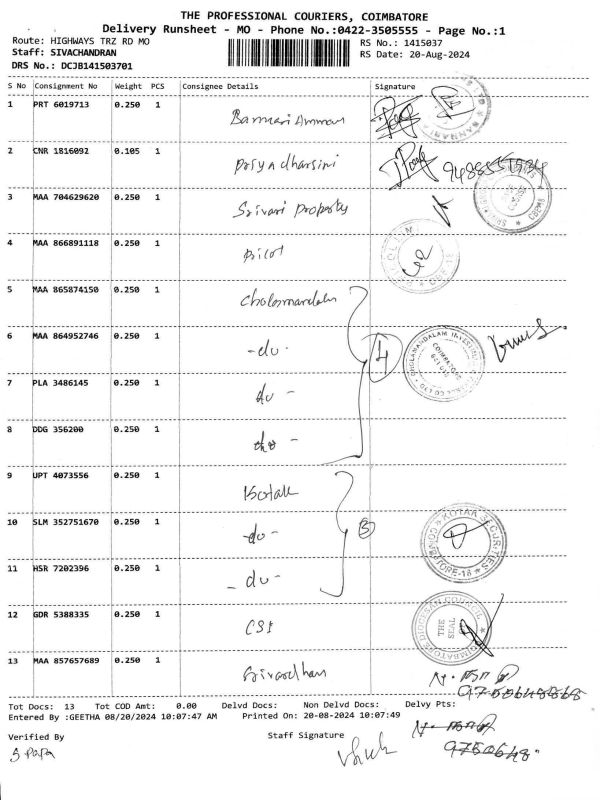 THE PROFESSIONAL COURIERS, COIMBATORE
Delivery Runsheet - MO - Phone No.:0422-3505555 - Page No.:1
Route: HIGHWAYS TRZ RD MO
RS No.: 1415037
Staff: SIVACHANDRAN
RS Date: 20-Aug-2024
DRS No.: DCJB141503701
S No Consignment No Weight PCS Consignee Details Signature
1 PRT 6019713 0.250 1 Bannari Amman
2 CNR 1816092 0.105 1 Priyadharsini
3 MAA 704629620 0.250 1 Srivari Property
4 MAA 866891118 0.250 1 Pilot
5 MAA 865874150 0.250 1 Cholamandalam
6 MAA 864952746 0.250 1 -do-
4
7 PLA 3486145 0.250 1 do -
8 DDG 356200 0.250 1 do -
9 UPT 4073556 0.250 1 Kotak
10 SLM 352751670 0.250 1 -do-
3
KOTAK SECURITIES
11 HSR 7202396 0.250 1 - do -
12 GDR 5388335 0.250 1 CSI
COIMBATORE DIOCESAN COUNCIL
THE SEAL
13 MAA 857657689 0.250 1 Srivardhan
Tot Docs: 13 Tot COD Amt: 0.00 Delvd Docs: Non Delvd Docs: Delvy Pts:
Entered By :GEETHA 08/20/2024 10:07:47 AM Printed On: 20-08-2024 10:07:49
Verified By
Staff Signature